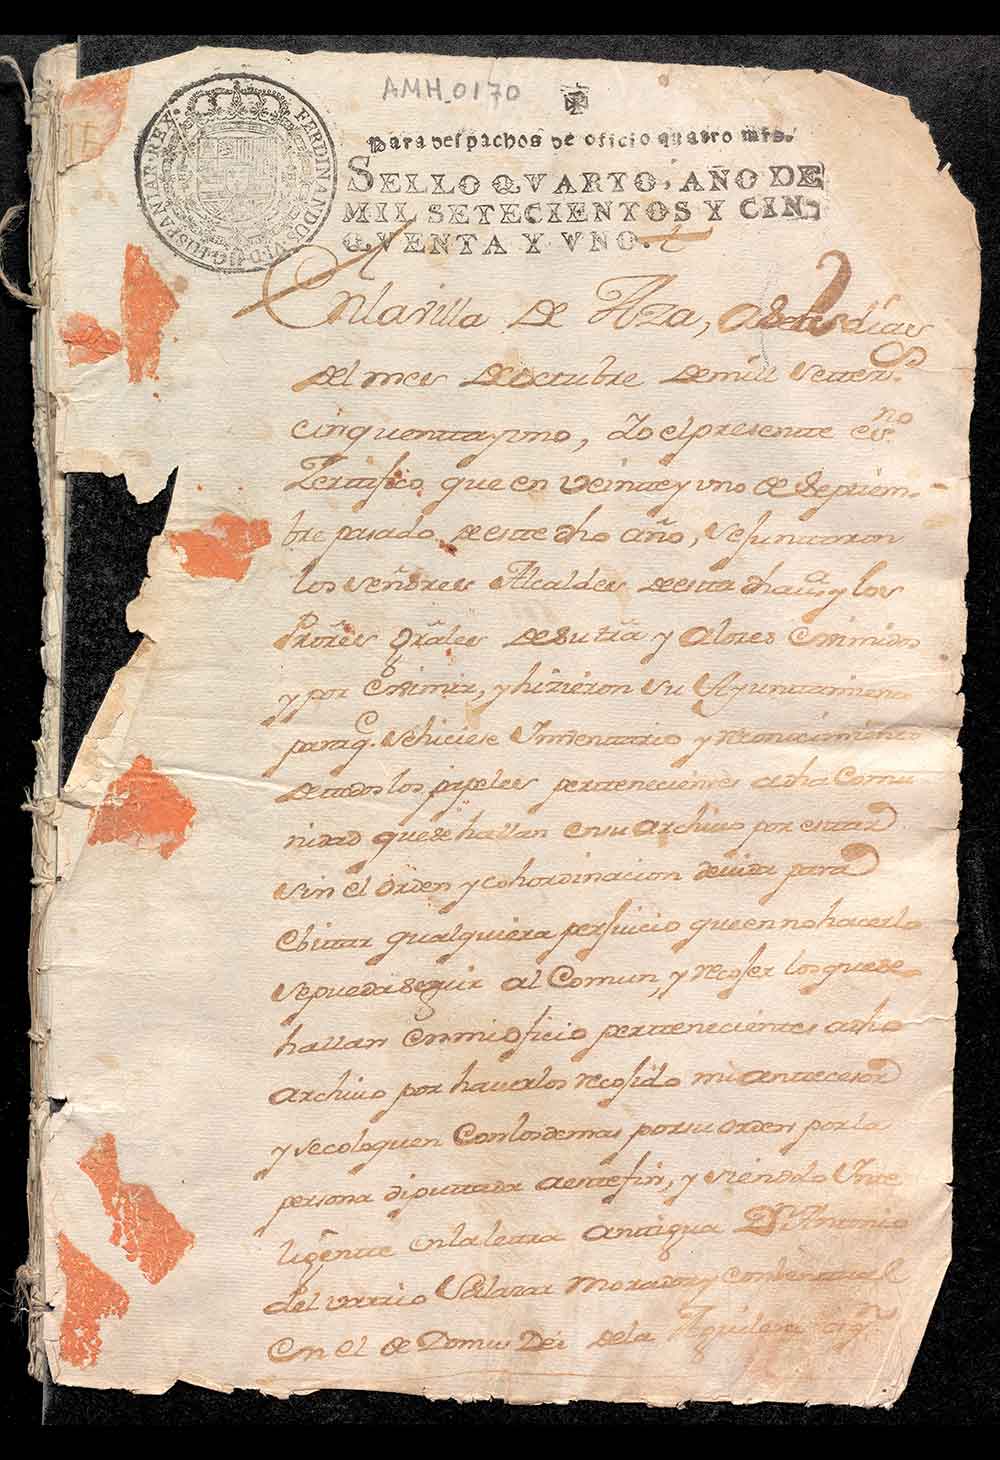 AMH_0170
FERDINANDUS.VI.D.G.HISPANIAR.REX.
Para despachos de oficio quatro mrs.
SELLO QVARTO, AÑO DE
MIL SETECIENTOS Y CIN
QVENTA Y VNO.
En la villa de Aza, a dos días
del mes de octubre de mill setter.s
cinquenta y uno, Yo el presente es.no
Zertifico que en veinte y uno de Septiem-
bre pasado de este dho año, se juntaron
los señores Alcaldes de esta dha va y los
Prores Grales de su trra y alores
y por eximir, y hizieron su Ayuntamiento
para q. se hiciese Imbentario y reconocimiento
de todos los papeles pertenecientes a dha Comu
nidad que se hallan en su archivo por estar
sin el orden y cohordinacion devida para
ebitar qualquiera perjuicio que en no hacerlo
se pueda seguir al Comun, y recojer los que se
hallan en mi oficio pertenecientes a dho
archivo por haverlos recojido mi antecesor
y se coloquen con los demas por su orden por la
persona diputada a este fin, y siendolo Inte
ligente en la letra antigua Dn Antonio
del varrio Salazar Morador y conbentual
en el de Domus Dei de la Aguilera